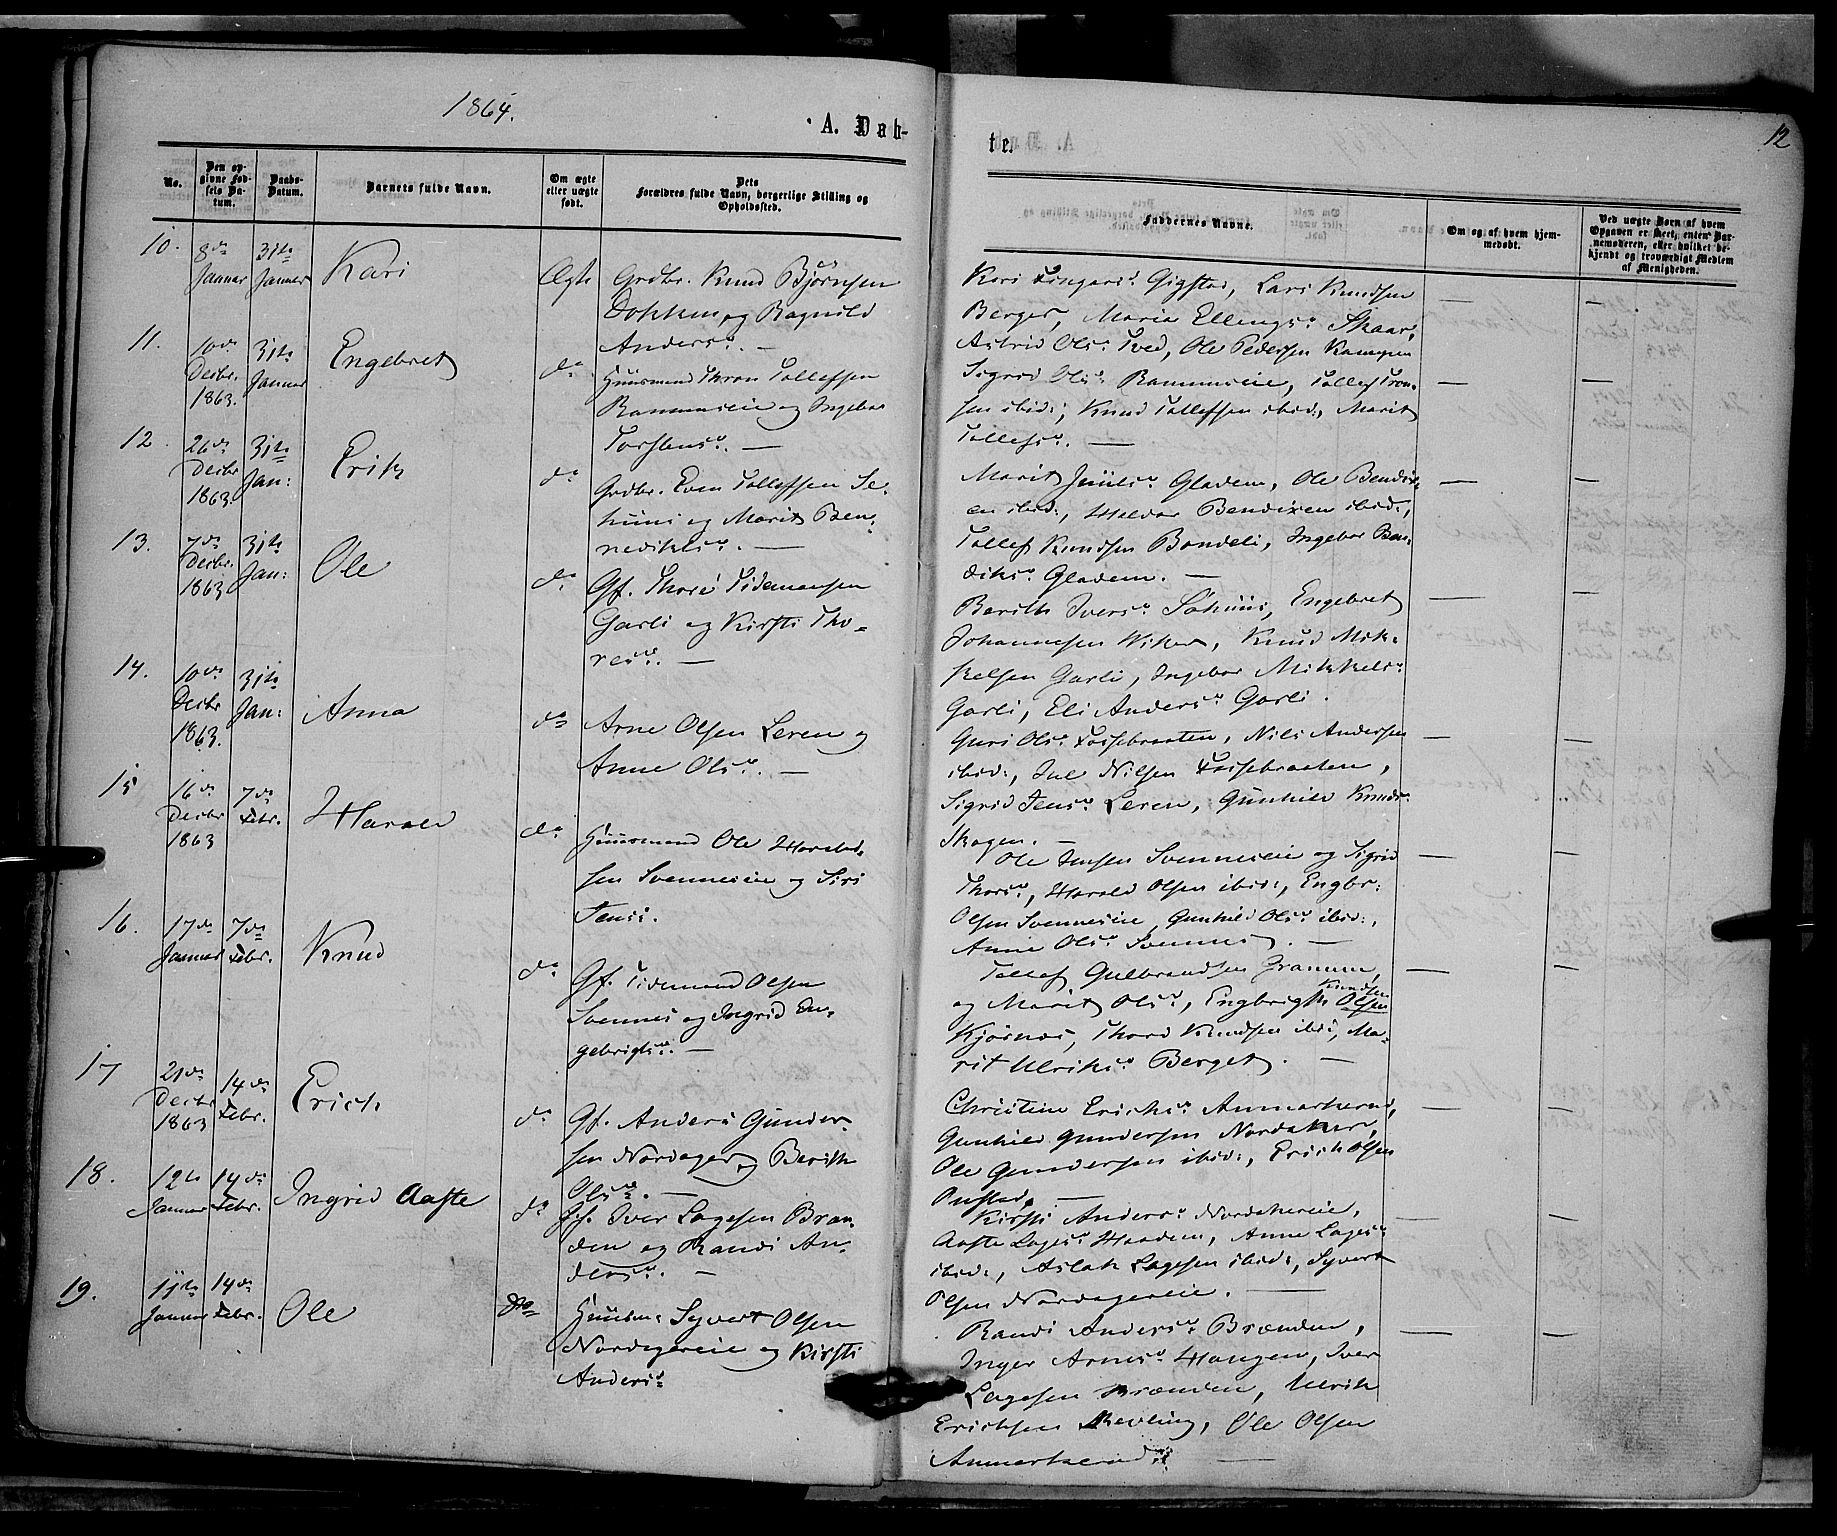 1864.
A. Døb-
te.
12
No.
Den opgivne Fødsels Datum.
Daabs-Datum.
Barnets fulde Navn.
Om ægte eller uægte født.
Dets Forældres fulde Navn, borgerlige Stilling og Opholdssted.
Faddernes Navne.
Om og af hvem hjemmedøbt.
Ved uægte Børn af hvem Opgaven er skeet, enten Barnemoderen, eller hvilket bekjendt og troværdigt Medlem af Menigheden.
10.
8de Januar
31te Januar
Kari
Ægte
Grdbr. Knud Bjørnsen
Dokken og Ragnild
Andersd. —
Kari Fingarsd. Gigstad, Lars Knudsen
Berger, Maria Ellingsd. Skaar,
Astrid Olsd. Tved, Ole Pedersen Kampen
11.
10de Decbr. 1863.
31te Januar
Engebret
do
Huusmand Thron Tollefsen
Rammeseie og Ingebor
Torstensd. —
Sigrid Olsd. Rammeseie, Tollef Tron-
sen ibid:, Knud Tollefsen ibid:, Marit
Tollefsd. —
12.
26de Decbr 1863
31te Jan:
Erik
do
Grdbr. Even Tollefsen Se-
huus og Marit Ben-
nediktsd. —
Marit Juulsd. Gladem, Ole Bendix-
en ibid:, Halvor Bendixen ibid:,
Tollef Knudsen Bondeli, Ingebor Ben-
diksd. Gladem. —
13.
7de Decbr. 1863
31te Jan:
Ole
do
Gf. Thore Tidemansen
Garli og Kirsti Tho-
resd. —
Berith Iversd. Sehuus, Engebret
Johannesen Wiker, Knud Mik-
kelsen Garli, Ingebor Mikkelsd.
Garli, Eli Andersd. Garli.
14.
10de Decbr 1863.
31te Jan:
Anna
do
Arne Olsen Leren og
Anne Olsd. —
Guri Olsd. Fossebraaten, Nils Andersen
ibid:, Juul Nilsen Fossebraaten,
Sigrid Jensd. Leren, Gunhild Knudsd.
Skogen. —
15
16de Decbr 1863
7de Febr.
Harald
do
Huusmand Ole Harald-
sen Svenneseie og Siri
Jensd.
Ole Jensen Svenneseie og Sigrid
Thorsd., Harald Olsen ibid:, Engbr:
Olsen Svenneseie, Gunhild Olsd. ibid:,
Anne Olsd. Svennes. —
16.
17de Januar
7de Febr.
Knud
do
Gf. Tidemand Olsen
Svennes og Ingrid En-
gebrigtsd. —
Tollef Gulbrandsen Framum,
og Marit Olsd., Engbrigt Knudsen Olsen
Kjørnes, Thord Knudsen ibid:, Ma-
rit Ulriksd. Berget. —
17
21de Decbr 1863
14de Febr.
Erich
do
Gf. Anders Gunder-
sen Nordager og Berith
Olsd. —
Christine Erichsd. Anmarkerud,
Gunhild Gundersen Nordaker,
Ole Gundersen ibid:, Erich Olsen
Onstad. —
18.
12te Januar
14de Febr.
Ingrid Aaste
do
Gf. Iver Lagesen Bræn-
den og Randi An-
dersd. —
Kirsti Andersd. Nordakereie,
Aaste Lagesd. Haadem, Anne Lagesd.
ibid:, Aslak Lagesen ibid:, Syvert
Olsen Nordagereie. —
19.
11te Januar
14de Febr.
Ole
do
Huusm: Syvert Olsen
Nordagereie og Kirsti
Andersd.
Randi Andersd. Brænden,
Inger Arnesd. Haugen, Iver
Lagesen Brænden, Ulrik
Erichsen Kevling, Ole Olsen
Anmarkerud. —